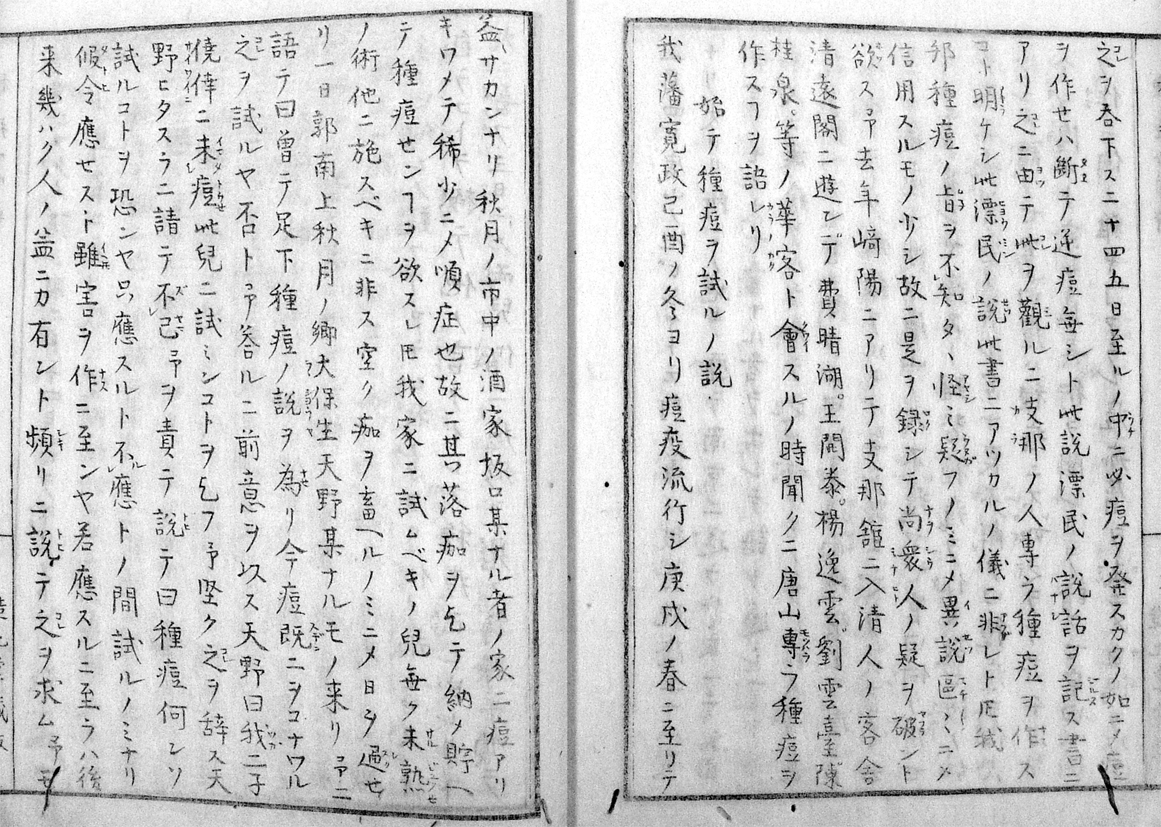 之ヲ呑下スニ十四五日至ルノ中ニ必痘ヲ発スカクノ如ニメ痘
ヲ作セハ断テ逆痘無シト此説漂民ノ説話ヲ記ス書ニ
アリ之ニ由テ此ヲ觀ルニ支那ノ人專ラ種痘ヲ作ス
コト明ケシ此漂民ノ説此書ニアツカルノ儀ニ非レト𪜈我
邦種痘ノ旨ヲ不知タヽ怪ミ疑フノミニメ異説區ミニメ
信用スルモノ少シ故ニ是ヲ録シテ尚衆人ノ疑ヲ破ント
欲ス予去年﨑陽ニアリテ支那舘ニ入清人ノ客舎
清遠閣ニ遊ンデ費晴湖。王開泰。楊逸雲。劉雲臺。陳
桂泉。等ノ華客ト會スルノ時聞クニ唐山專ラ種痘ヲ
作スヿヲ語レリ
始テ種痘ヲ試ルノ説
我藩寛政己酉ノ冬ヨリ痘疫流行シ庚戌ノ春ニ至リテ
益サカンナリ秋月ノ市中ノ酒家坂口某ナル者ノ家ニ痘アリ
キワメテ稀少ニメ順症也故ニ其落痂ヲ乞テ納メ貯ヘ
テ種痘センヿヲ欲スレ𪜈我家ニ試ムベキノ兒無ク未熟
ノ術他ニ施スベキニ非ス空ク痂ヲ畜ヘルノミニメ日ヲ過セ
リ一日郭南上秋月ノ郷大保生天野某ナルモノ来リ予ニ
語テ曰曽テ足下種痘ノ説ヲ為リ今痘既ニヲコナワル
之ヲ試ルヤ否ト予答ルニ前意ヲ以ス天野曰我ニ子
僥倖ニ未痘此兒ニ試ミンコトヲ乞フ予堅ク之ヲ辞ス天
野ヒタスラニ請テ不已予ヲ責テ説テ曰種痘何ンソ
試ルコトヲ恐ンヤ只應スルト不應トノ間試ルノミナリ
假令應セスト雖害ヲ作ニ至ンヤ若應スルニ至ラハ後
来幾ハク人ノ益ニカ有ント頻リニ説テ之ヲ求ム予モ